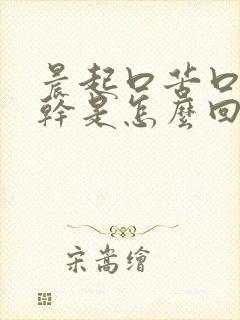 晨起口苦口
幹是怎麼回
宋嵩繪